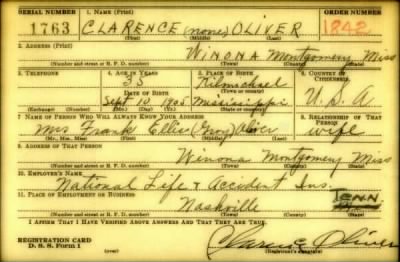 SERIAL NUMBER 1. NAME (Print) ORDER NUMBER
1763 CLARENCE (none) OLIVER 1842
(First) (Middle) (Last)
2. ADDRESS (Print)
WINONA Montgomery Miss
(Number and street or R. F. D. number) (Town) (County) (State)
3. TELEPHONE 4. AGE IN YEARS 5. PLACE OF BIRTH 6. COUNTRY OF CITIZENSHIP
35 Kilmichael
DATE OF BIRTH (Town or county)
Sept 10, 1905 Mississippi U.S.A
(Exchange) (Number) (Mo.) (Day) (Yr.) (State or country)
7. NAME OF PERSON WHO WILL ALWAYS KNOW YOUR ADDRESS 8. RELATIONSHIP OF THAT PERSON
Mrs Frank Ellis Oliver wife
(Mr., Mrs., Miss) (First) (Middle) (Last)
9. ADDRESS OF THAT PERSON
Winona Montgomery Miss
(Number and street or R. F. D. number) (Town) (County) (State)
10. EMPLOYER'S NAME
National Life & Accident Ins.
11. PLACE OF EMPLOYMENT OR BUSINESS
Nashville TENN
(Number and street or R. F. D. number) (Town) (County) (State)
I AFFIRM THAT I HAVE VERIFIED ABOVE ANSWERS AND THAT THEY ARE TRUE.
REGISTRATION CARD
D. S. S. Form 1 Clarence Oliver
(Registrant's signature)